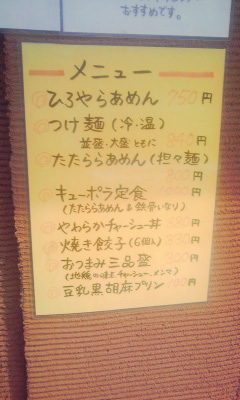 おすすめです。
メニュー
ひろやらあめん 750円
つけ麺(冷・温)
並盛・大盛ともに 円
たたららあめん(担々麺)
円
キューポラ定食 円
(たたららあめん&鉄骨いなり)
やわらかチャーシュー丼 円
焼き餃子(6個入) 円
おつまみ三品盛 円
(地域の味とチャーシュー、メンマ)
豆乳黒胡麻プリン 円